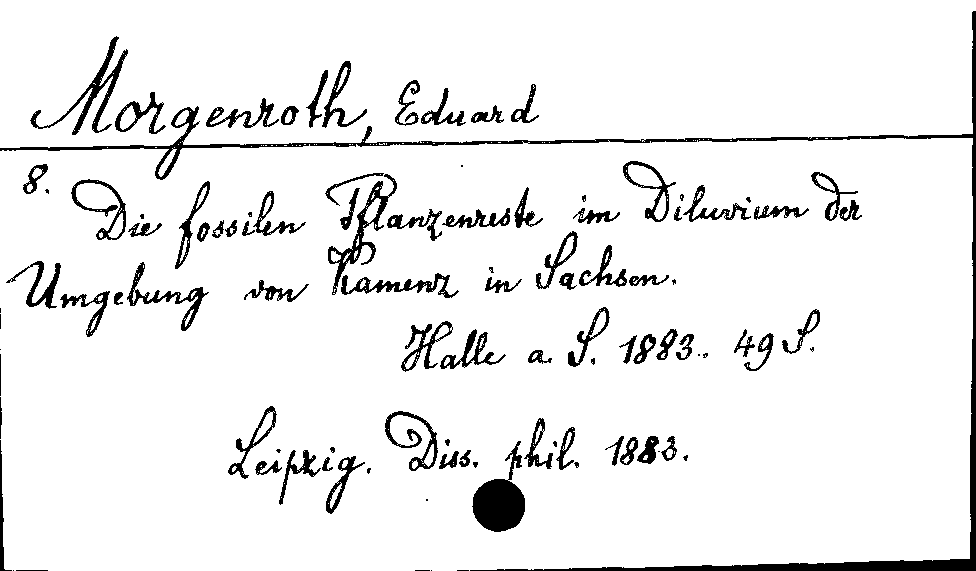 Morgenroth, Eduard
8.
Die fossilen Pflanzenreste im Diluvium der
Umgebung von Kamenz in Sachsen.
Halle a. S. 1883. 49 S.
Leipzig. Diss. phil. 1883.